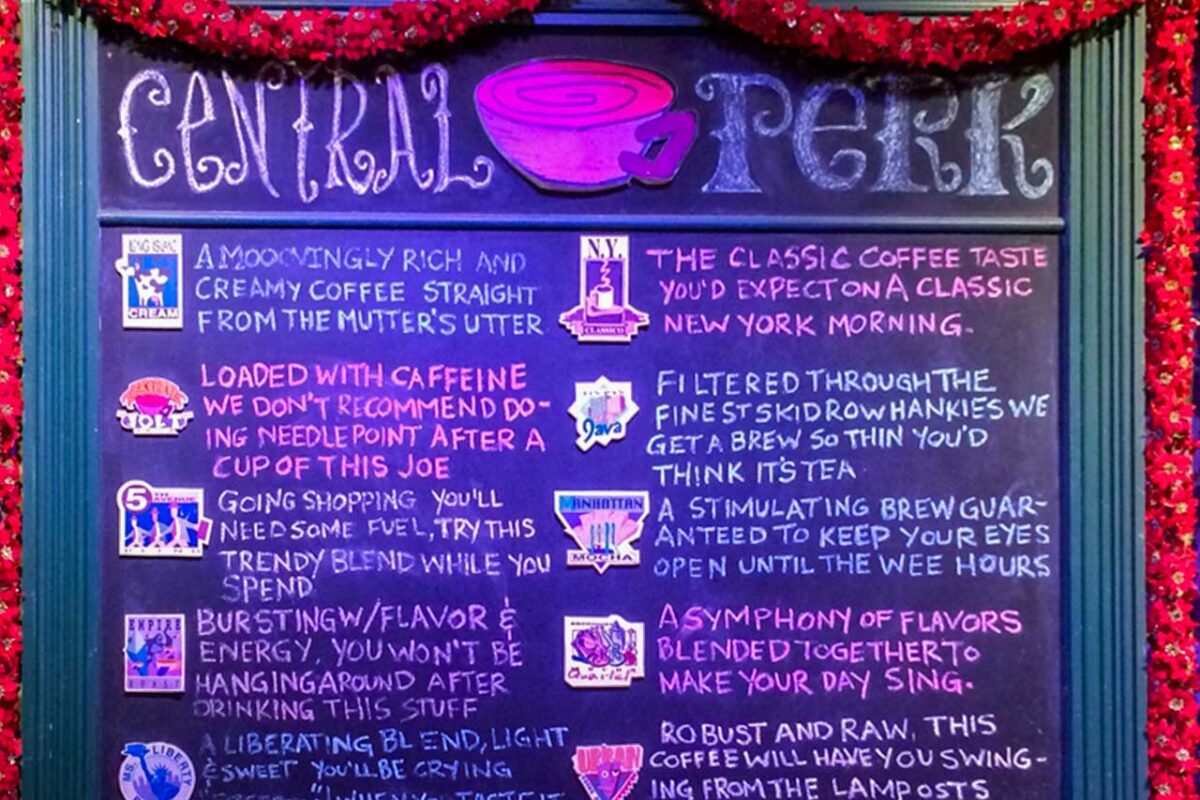 CENTRAL PERK
LONG ISLAND
CREAM
A MOOOVINGLY RICH AND
CREAMY COFFEE STRAIGHT
FROM THE MUTTER'S UTTER
LOADED WITH CAFFEINE
WE DON'T RECOMMEND DO-
ING NEEDLEPOINT AFTER A
CUP OF THIS JOE
5TH AVENUE
BLEND
GOING SHOPPING YOU'LL
NEED SOME FUEL, TRY THIS
TRENDY BLEND WHILE YOU
SPEND
EMPIRE
ROAST
BURSTING W/FLAVOR &
ENERGY, YOU WON'T BE
HANGING AROUND AFTER
DRINKING THIS STUFF
MS. LIBERTY
A LIBERATING BLEND, LIGHT
& SWEET YOU'LL BE CRYING
WHEN YOU TASTE IT
N.Y.
CLASSICO
THE CLASSIC COFFEE TASTE
YOU'D EXPECT ON A CLASSIC
NEW YORK MORNING.
Java
FILTERED THROUGH THE
FINEST SKID ROW HANKIES WE
GET A BREW SO THIN YOU'D
THINK IT'S TEA
MANHATTAN
MOCHA
A STIMULATING BREW GUAR-
ANTEED TO KEEP YOUR EYES
OPEN UNTIL THE WEE HOURS
Quartet
A SYMPHONY OF FLAVORS
BLENDED TOGETHER TO
MAKE YOUR DAY SING.
URBAN
ROBUST AND RAW, THIS
COFFEE WILL HAVE YOU SWING-
ING FROM THE LAMPOSTS